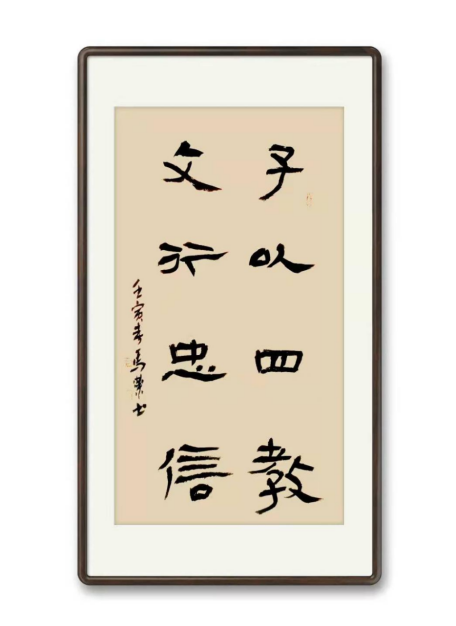 子以四教
文行忠信
壬寅
馬
书